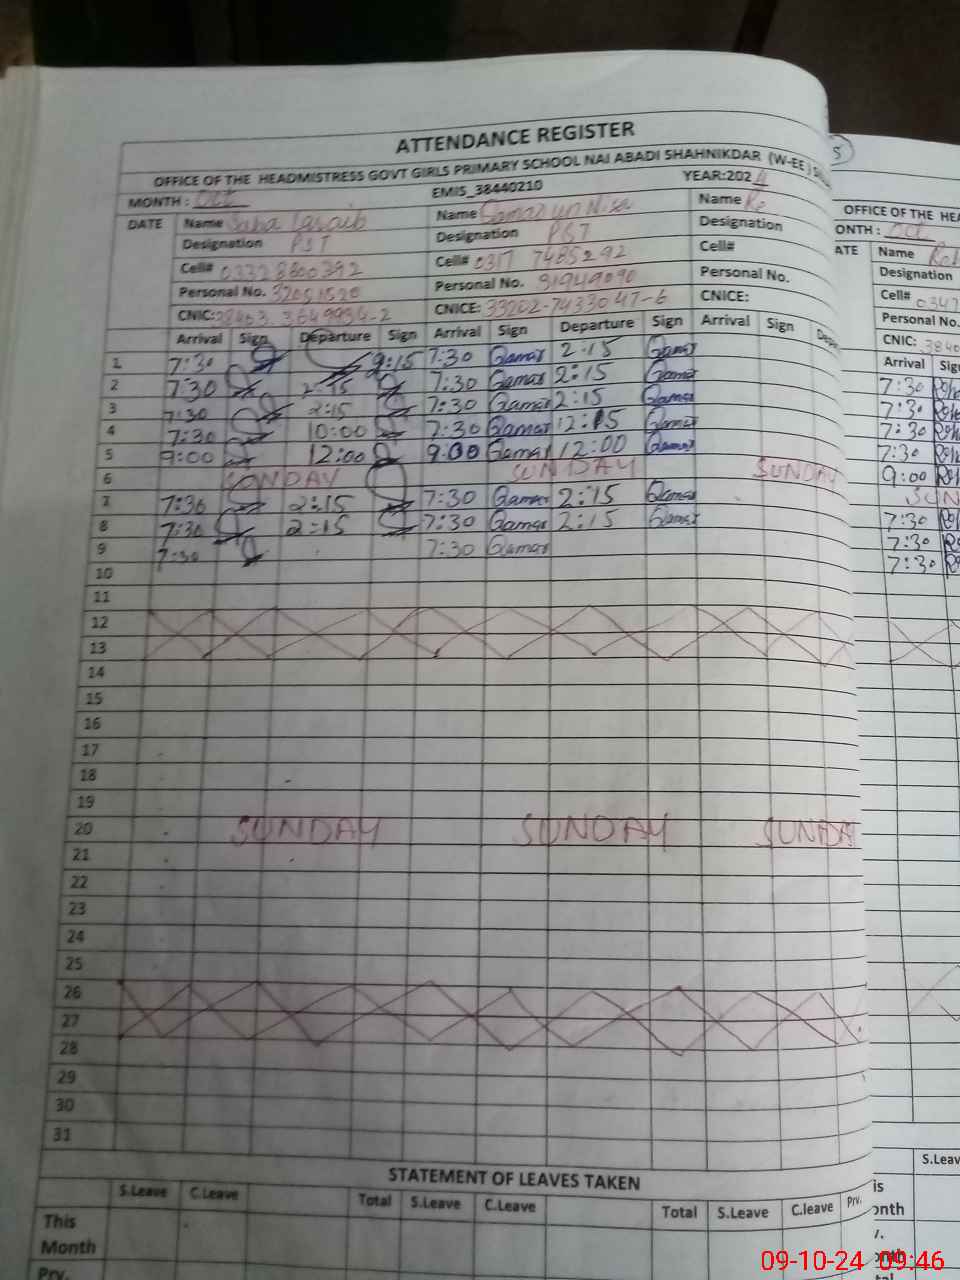 ATTENDANCE REGISTER
OFFICE OF THE HEADMISTRESS GOVT GIRLS PRIMARY SCHOOL NAI ABADI SHAHNIKDAR (W-EE)
MONTH : Oct EMIS_38440210 YEAR:2024
DATE Name Saba Name Name
Designation PST Designation PST Designation
Cell# Cell# 0317 7485292 Cell#
Personal No. Personal No. Personal No.
CNIC: CNICE: 33202-7433047-6 CNICE:
Arrival Sign Departure Sign Arrival Sign Departure Sign Arrival Sign
1 7:30 2:15 7:30 Qamar 2:15 Qamar
2 7:30 2:15 7:30 Qamar 2:15 Qamar
3 7:30 2:15 7:30 Qamar 2:15 Qamar
4 7:30 10:00 7:30 Qamar 12:15 Qamar
5 9:00 12:00 9:00 Qamar 12:00 Qamar
6 SUNDAY SUNDAY SUNDAY
7 7:30 2:15 7:30 Qamar 2:15 Qamar
8 7:30 2:15 7:30 Qamar 2:15 Qamar
9 7:30 7:30 Qamar
10
11
12
13
14
15
16
17
18
19
20 SUNDAY SUNDAY SUNDAY
21
22
23
24
25
26
27
28
29
30
31
STATEMENT OF LEAVES TAKEN
S.Leave C.Leave Total S.Leave C.Leave Total S.Leave C.leave Prv.
This
Month
Prv.
5
OFFICE OF THE HEA
ONTH : Oct
ATE Name
Designation
Cell# 0347
Personal No.
CNIC: 3840
Arrival Sig
7:30
7:30
7:30
7:30
9:00
SUN
7:30
7:30
7:30
S.Leav
is
onth
v.
onth
tal
09-10-24 09:46